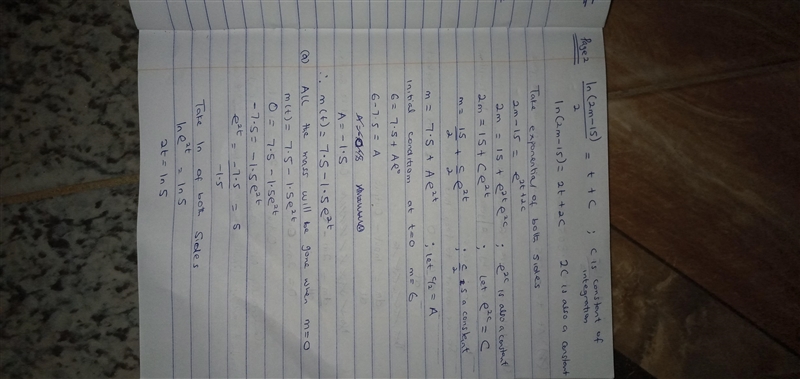 Page 2
ln(2m-15)/2 = t + C ; C is constant of integration
ln(2m-15) = 2t + 2C 2C is also a constant
Take exponential of both sides
2m-15 = e^{2t+2C}
2m = 15 + e^{2t} e^{2C} ; e^{2C} is also a constant
2m = 15 + C e^{2t} ; Let e^{2C} = C
m = 15/2 + C/2 e^{2t} ; C/2 is a constant
m = 7.5 + A e^{2t} ; let C/2 = A
Initial condition at t=0 m = 6
6 = 7.5 + A e^0
6 - 7.5 = A
A = -1.5
∴ m(t) = 7.5 - 1.5 e^{2t}
(a) All the mass will be gone when m = 0
m(t) = 7.5 - 1.5 e^{2t}
0 = 7.5 - 1.5 e^{2t}
-7.5 = -1.5 e^{2t}
e^{2t} = -7.5/-1.5 = 5
Take ln of both sides
ln e^{2t} = ln 5
2t = ln 5